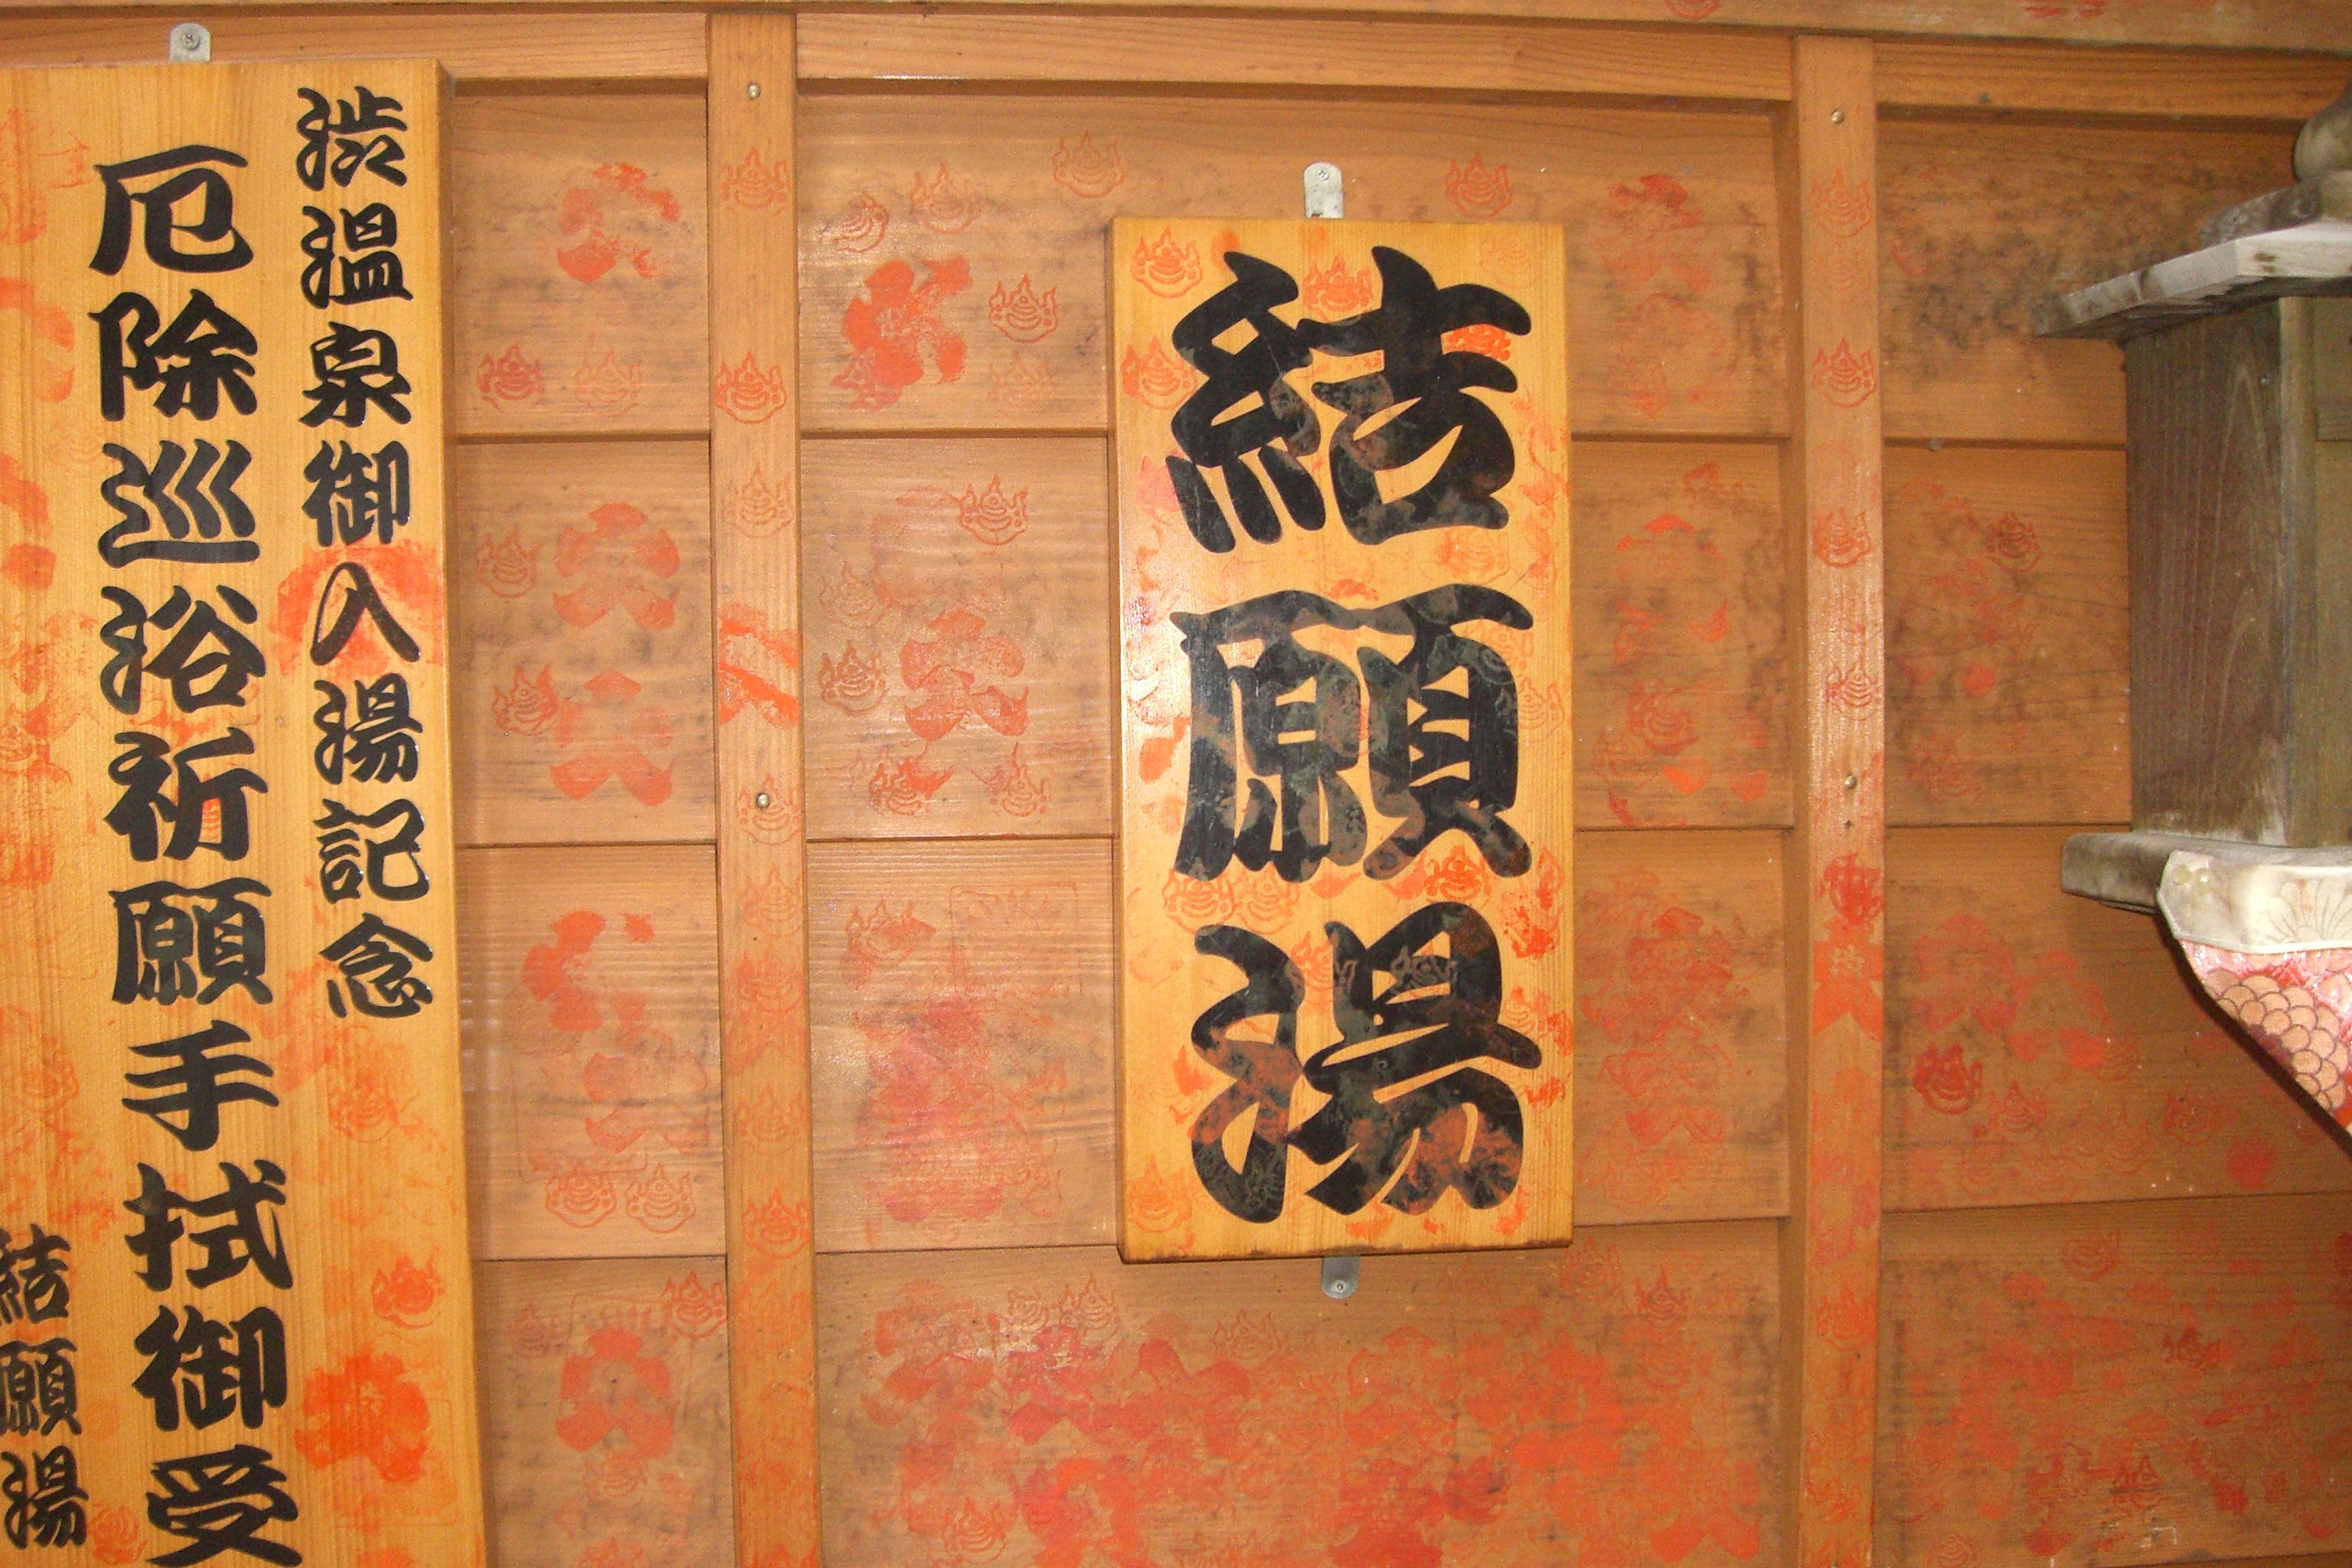 結願湯
渋温泉御入湯記念
厄除巡浴祈願手拭御受
結願湯